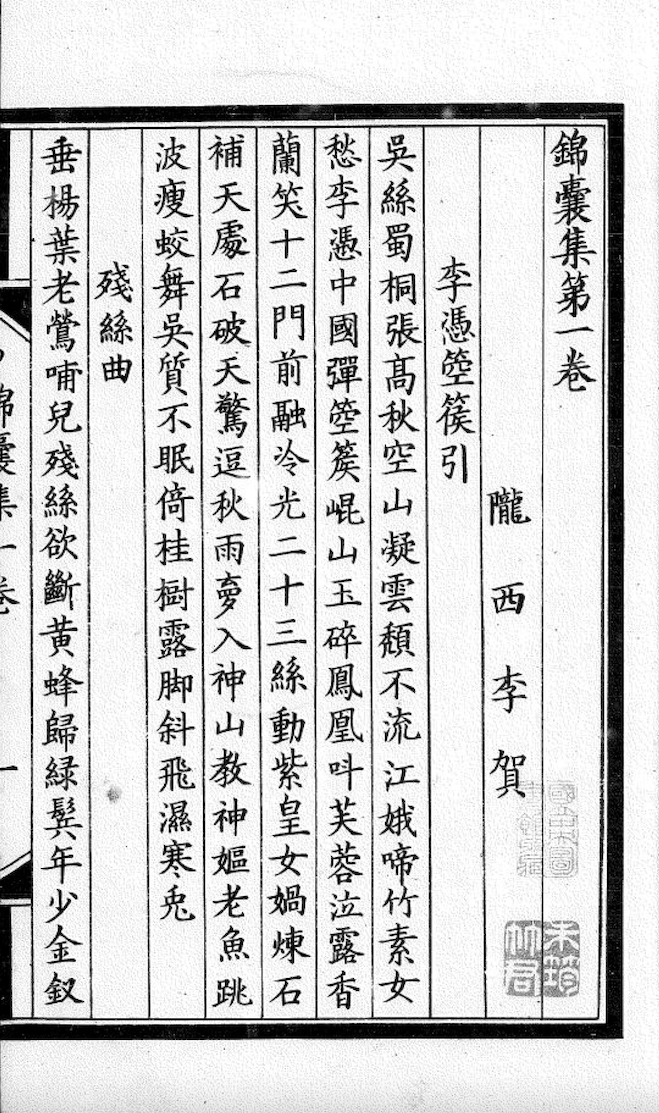 錦囊集第一卷
隴西李賀
李憑箜篌引
吳絲蜀桐張髙秋空山凝雲頹不流江娥啼竹素女
愁李憑中國彈箜篌崐山玉碎鳳凰呌芙蓉泣露香
蘭笑十二門前融冷光二十三絲動紫皇女媧煉石
補天處石破天驚逗秋雨夢入神山教神嫗老魚跳
波瘦蛟舞吳質不眠倚桂樹露脚斜飛濕寒兎
殘絲曲
垂楊葉老鶯哺兒殘絲欲斷黃蜂歸緑鬂年少金釵
錦囊集一卷
一